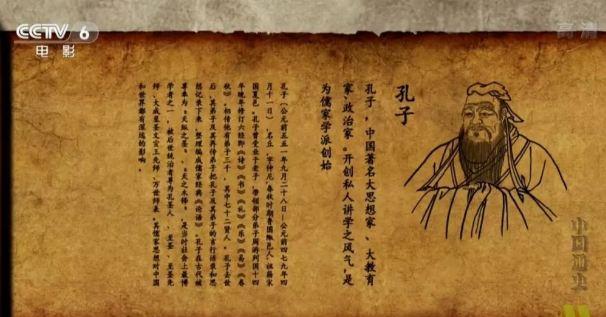 CCTV 6
电影
高清
孔子
孔子,中国著名大思想家、大教育
家、政治家。开创私人讲学之风气,是
为儒家学派创始
孔子(公元前五五一年九月二十八日—公元前四七九年四
月十一日),名丘,字仲尼,春秋时期鲁国陬邑人,祖籍宋
国夏邑。孔子曾受业于老子,带领部分弟子周游列国十四
年晚年修订六经即《诗》《书》《礼》《乐》《易》《春
秋》。相传他有弟子三千,其中七十二贤人。孔子去世
后,其弟子及其再传弟子把孔子及其弟子的言行语录和思
想记录下来,整理编成儒家经典《论语》。孔子在古代被
尊奉为“天纵之圣”、“天之木铎”,是当时社会上最博
学者之一,被后世统治者尊为孔圣人、至圣、至圣先
师、大成至圣文宣王先师、万世师表。其儒家思想对中国
和世界都有深远的影响。
中国通史